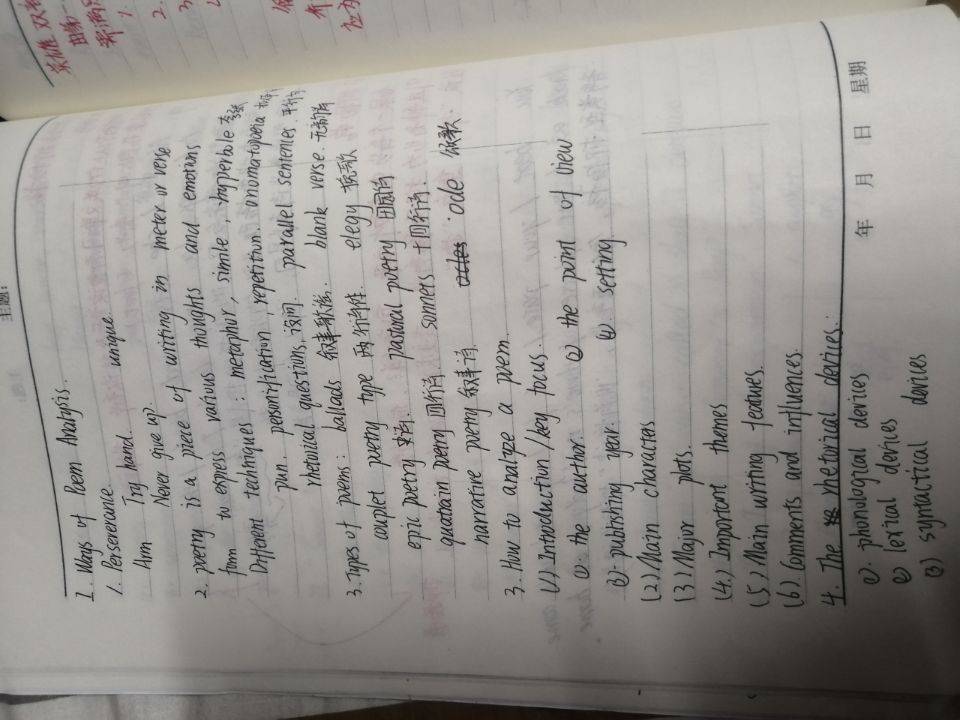 主题:
I. Ways of Poem Analysis.
1. Perseverance.
Aim Try hand. unique.
Never give up?
2. poetry is a piece of writing in meter or verse
form to express various thoughts and emotions
Different techniques: metaphor, simile, hyperbole 夸张
pun. personification, repetition. onomatopoeia
rhetorical questions, 设问. parallel sentences. 平行句
3. Types of poems: ballads 叙事歌谣. blank verse. 无韵诗
couplet poetry type 两行诗 elegy 挽歌
epic poetry 史诗. pastoral poetry 田园诗
quatrain poetry 四行诗. sonnets 十四行诗.
narrative poetry 叙事诗. ode 颂歌
3. How to analyze a poem.
(1) Introduction/key focus.
①. the author. ② the point of view
③. publishing year. ④. setting
(2) Main characters
(3) Major plots.
(4.) Important themes
(5) Main writing features.
(6) Comments and influences.
4. The rhetorical devices.
①. phonological devices
② lexical devices
③) syntactical devices
年 月 日 星期